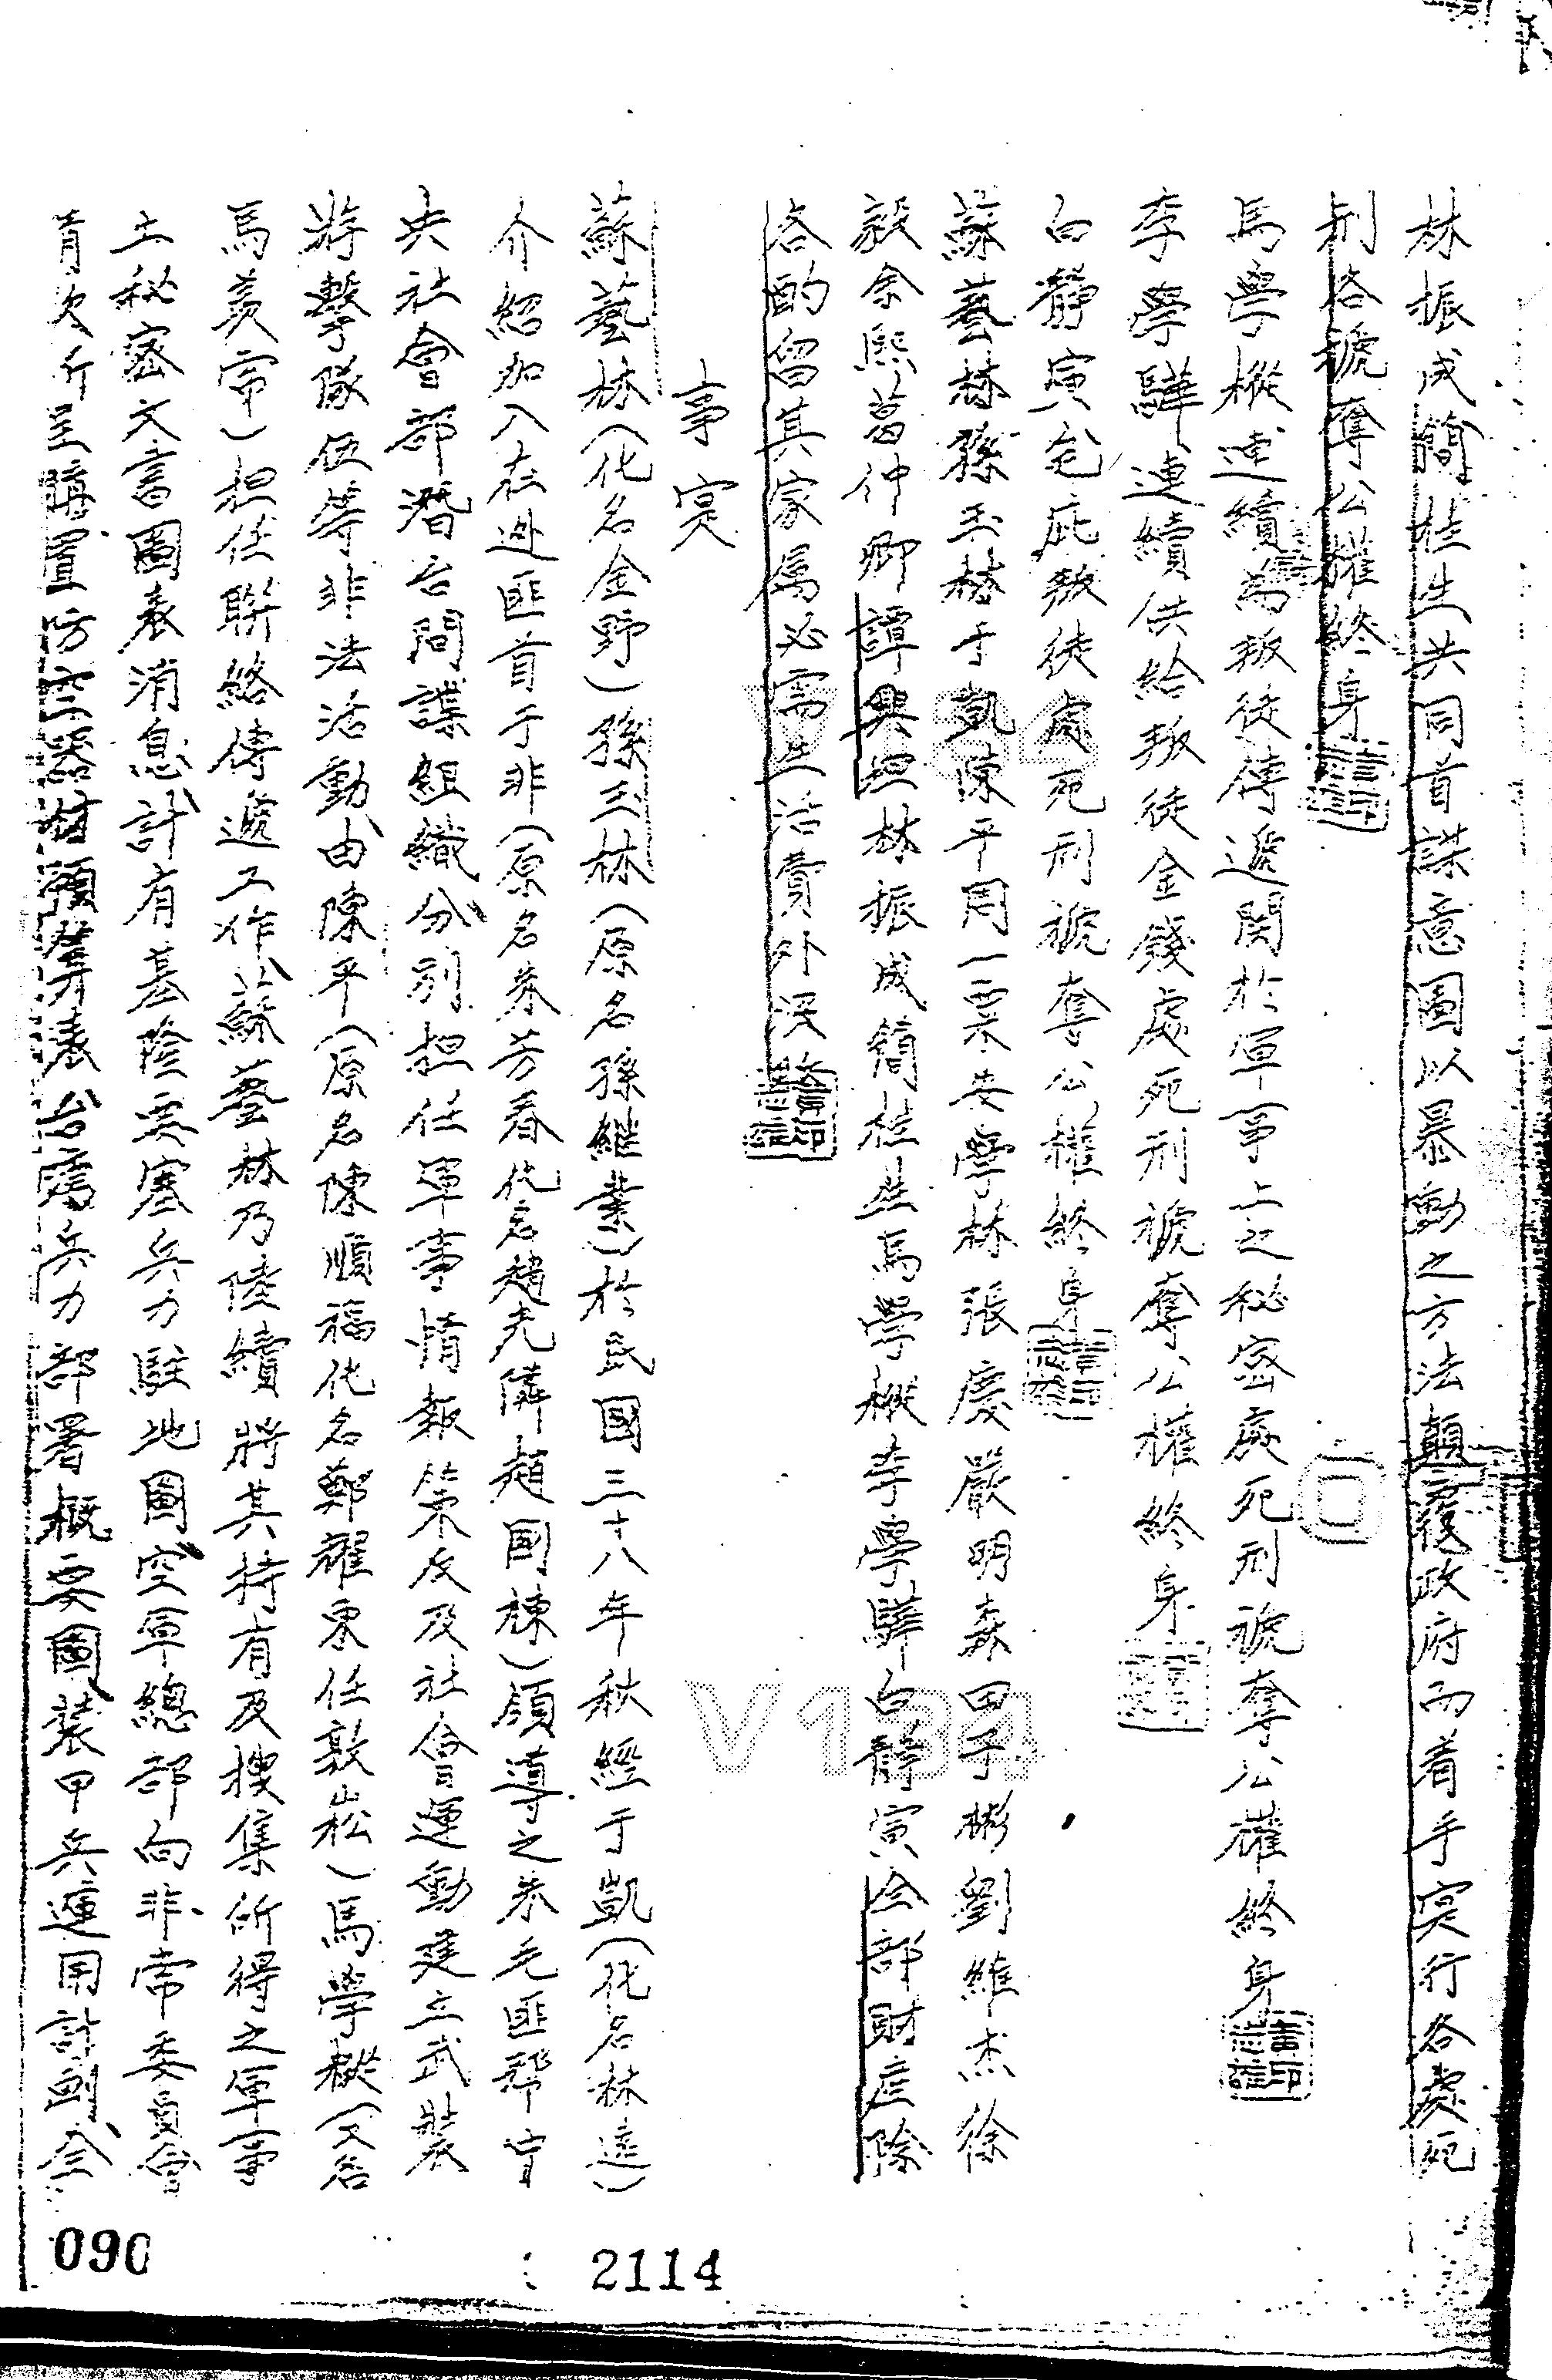 林振成簡桂生共同首謀意圖以暴動之方法顛覆政府而着手实行各處死
刑各褫奪公權終身
馬學樅連續為叛徒傳遞関於軍事上之秘密處死刑褫奪公權終身
李學驊連續供給叛徒金錢處死刑褫奪公權終身
白靜寅包庇叛徒處死刑褫奪公權終身
蘇藝林孫玉林于凱陳平周一粟安學林張慶嚴明森田子彬劉維杰徐
毅余熙葛仲卿譚興坦林振成簡桂生馬學樅李學驊白靜寅全部財産除
各酌留其家屬必需生活費外沒
事实
蘇藝林(化名金野)孫玉林(原名孫継業)於民國三十八年秋經于凱(化名林達)
介紹加入在逃匪首于非(原名朱芳春化名趙光隣趙國棟)領導之朱毛匪帮中
央社會部潜台間諜組織分別担任軍事情報策反及社會運動建立武裝
游擊隊伍等非法活動由陳平(原名陳順福化名鄭耀東任敦崧)馬學樅(又名
馬義常)担任聯絡傳遞工作蘇藝林乃陸續將其持有及搜集所得之軍事
上秘密文書圖表消息計有基隆要塞兵力駐地圖空軍總部向非常委員會
台灣兵力部署概要圖裝甲兵運用計劃全
090
2114
V134